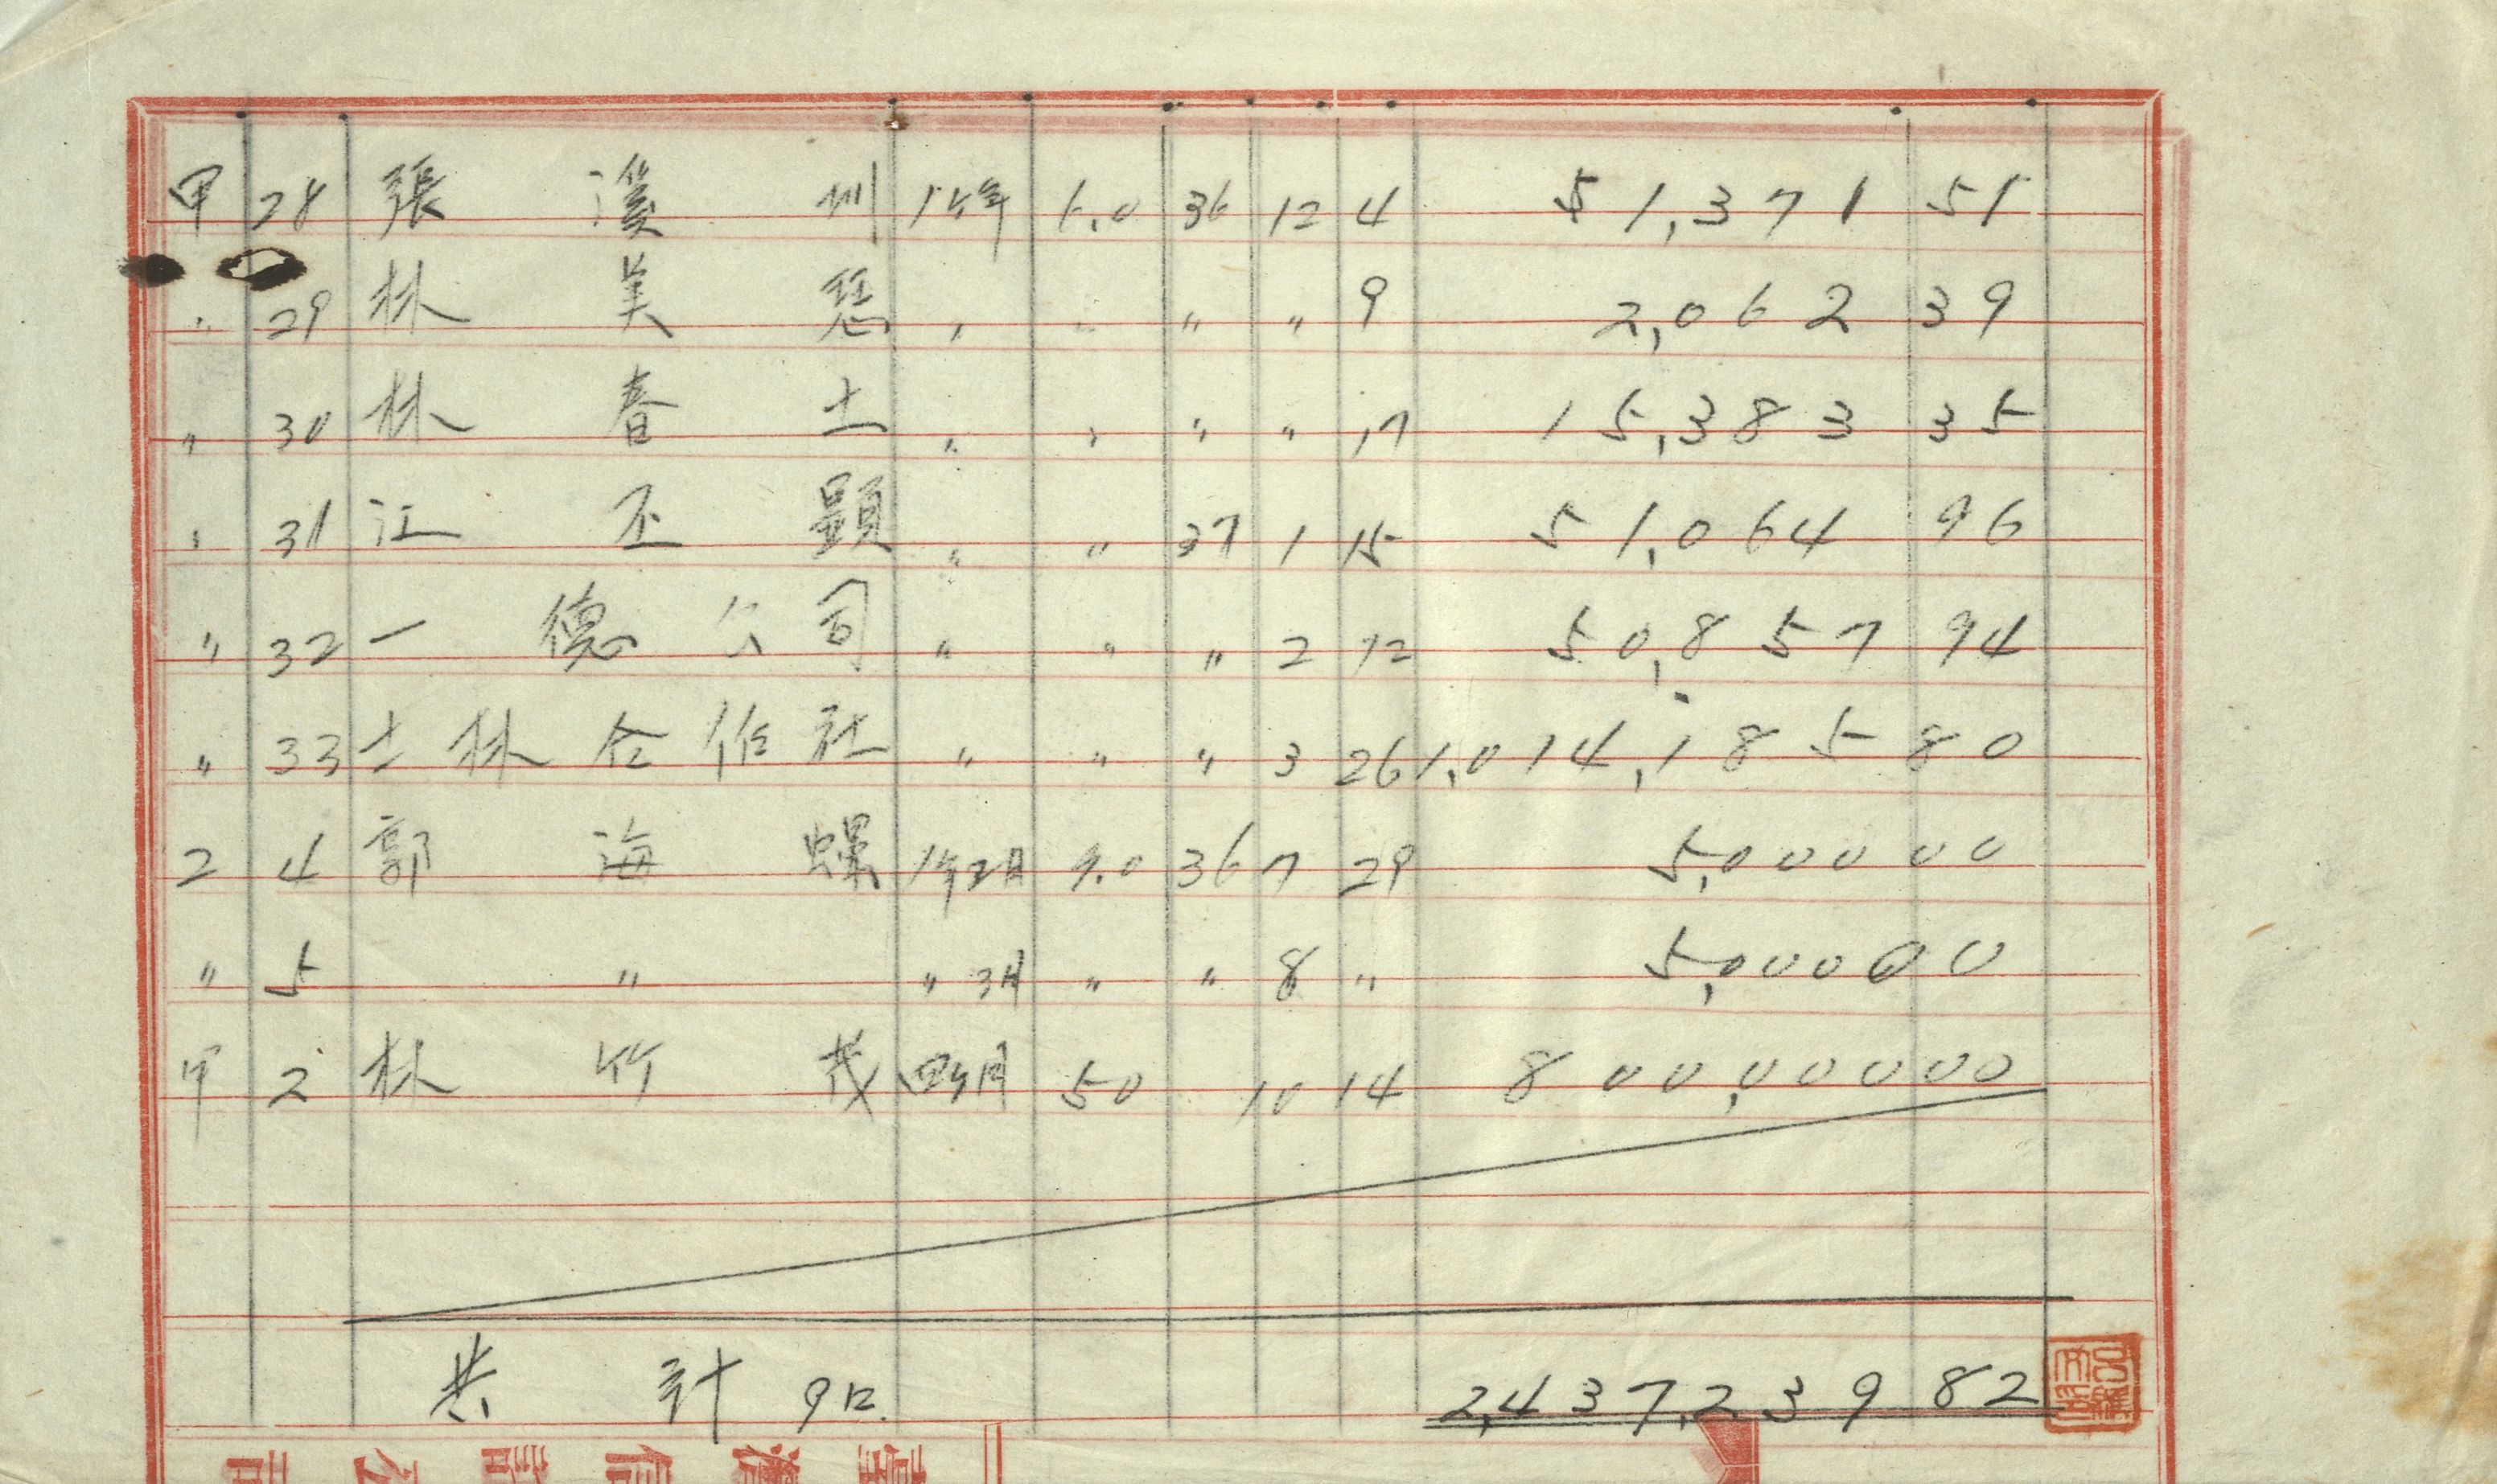 甲 28 張 溪 圳 1ヶ年 6.0 36 12 4 51,371 51
〃 29 林 美 〃 〃 〃 〃 9 2,062 39
〃 30 林 春 土 〃 〃 〃 〃 17 15,383 35
〃 31 江 丕 顕 〃 〃 37 1 15 51,064 96
〃 32 一 德 公 司 〃 〃 〃 2 12 50,857 94
〃 33 士 林 合 作 社 〃 〃 〃 3 26 1,014,185 80
2 4 郭 海 螺 1年2月 9.0 36 7 29 5,000 00
〃 5 〃 〃 3月 〃 〃 8 〃 5,000 00
甲 2 林 竹 茂 ヶ月 50 10 14 800,000 00
共 計 9口. 2,437,239 82
臺 灣 信 託 公 司